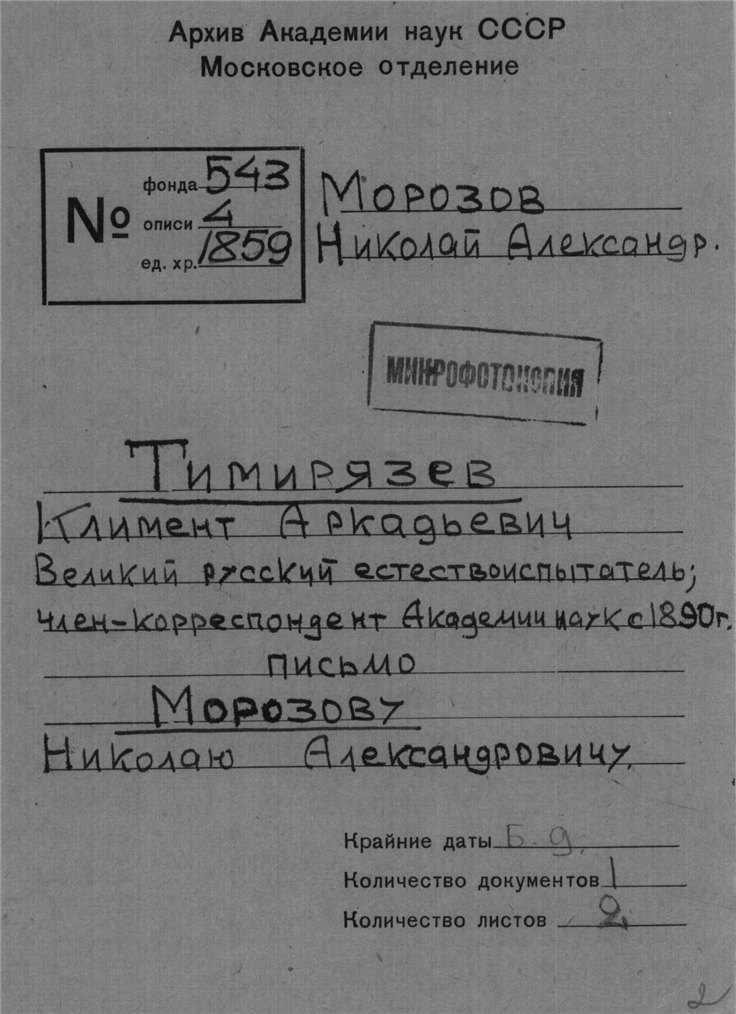 Архив Академии наук СССР
Московское отделение
№
фонда 543
описи 4
ед. хр. 1859
Морозов
Николай Александр.
МИКРОФОТОКОПИЯ
Тимирязев
Климент Аркадьевич
Великий русский естествоиспытатель;
член-корреспондент Академии наук с 1890г.
письмо
Морозову
Николаю Александровичу.
Крайние даты Б. д.
Количество документов 1
Количество листов 2
2